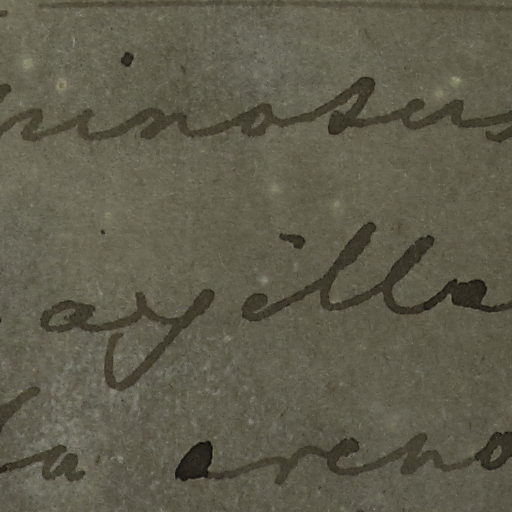 pinosus
axilla
la areno